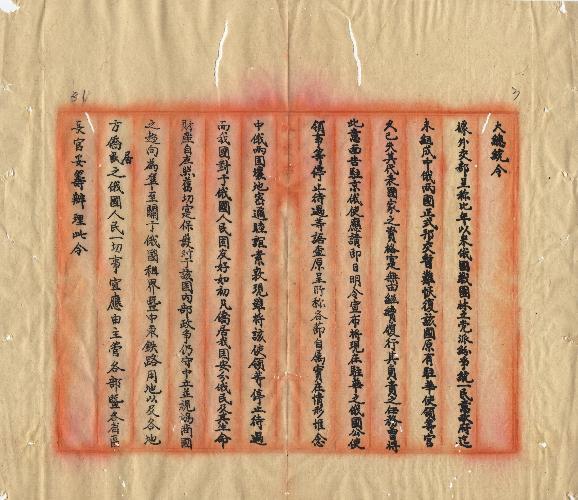 大總統令
據外交部呈稱比年以來俄國戰團林立黨派紛爭統一民意政府迄
未組成中俄兩國正式邦交暫難恢復該國原有駐華使領等官
久已失其代表國家之資格實無由繼續履行其負責之任務曾將
此意面告駐京俄使應請即日明令宣布將現在駐華之俄國公使
領事等停止待遇等語查原呈所稱各節自屬實在情形惟念
中俄兩國壤地密邇睦誼素敦現雖將該使領等停止待遇
而我國對于俄國人民固友好如初凡僑居我國安分俄民及其生命
財產自應照舊切實保護對于該國內部政爭仍守中立並視協商國
之趨向為準至關于俄國租界暨中東鐵路用地以及各地
方僑居之俄國人民一切事宜應由主管各部暨各省區
長官妥籌辦理此令